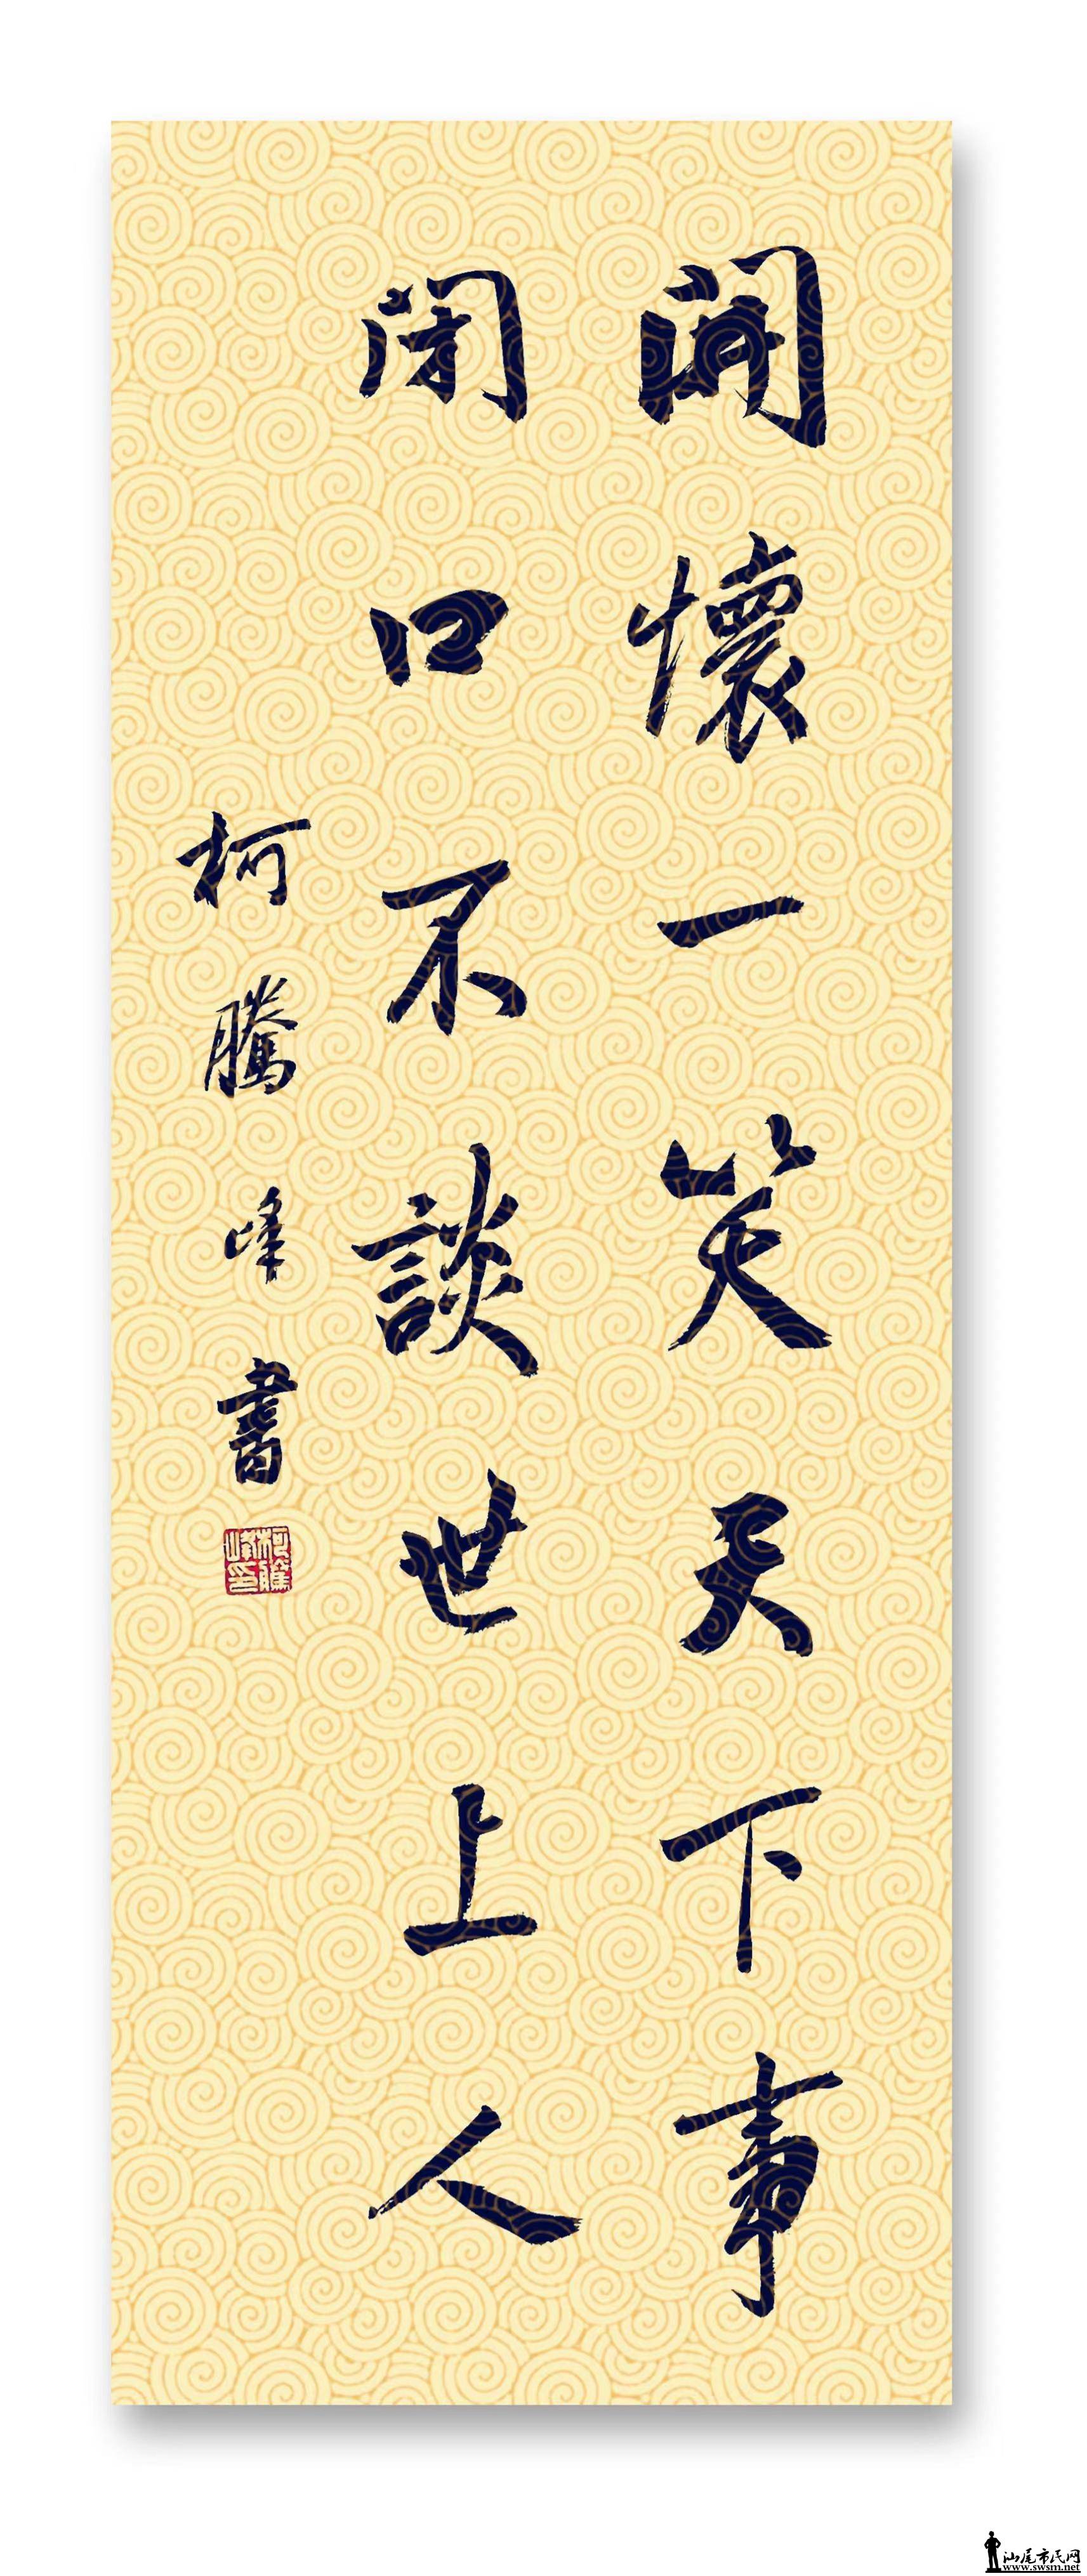 開懷一笑天下事
閉口不談世上人
柯騰峰書
柯騰峰印
汕尾市民网
www.swsm.net